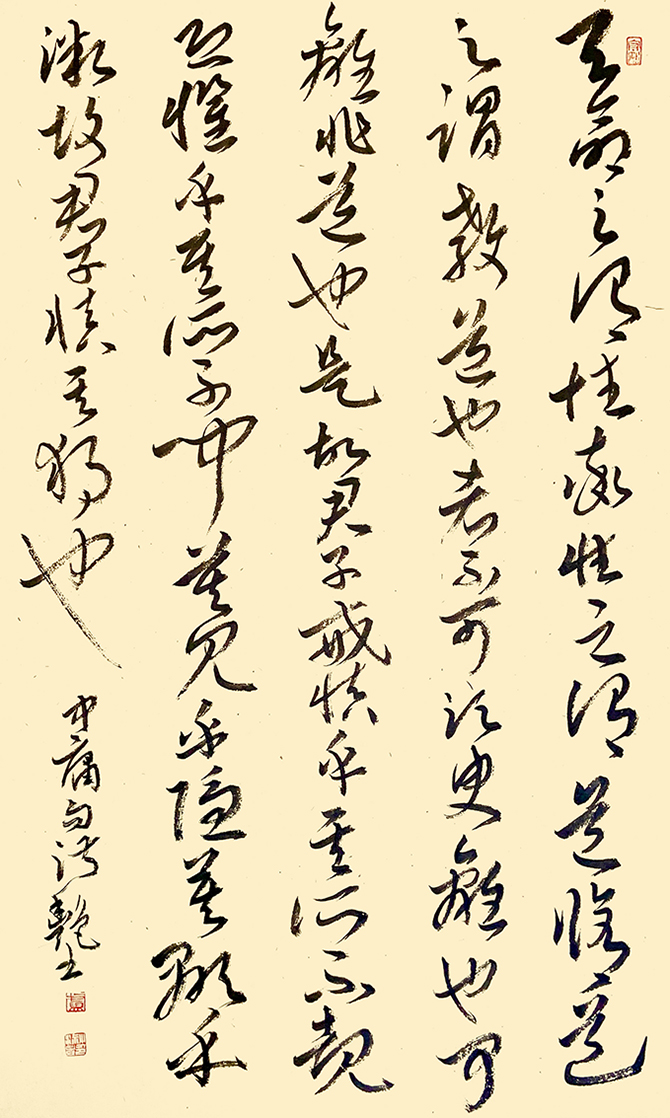 天命之謂性率性之謂道脩道
之謂教道也者不可須臾離也可
離非道也是故君子戒慎乎其所不覩
恐懼乎其所不聞莫見乎隱莫顯乎
微故君子慎其獨也
中庸句